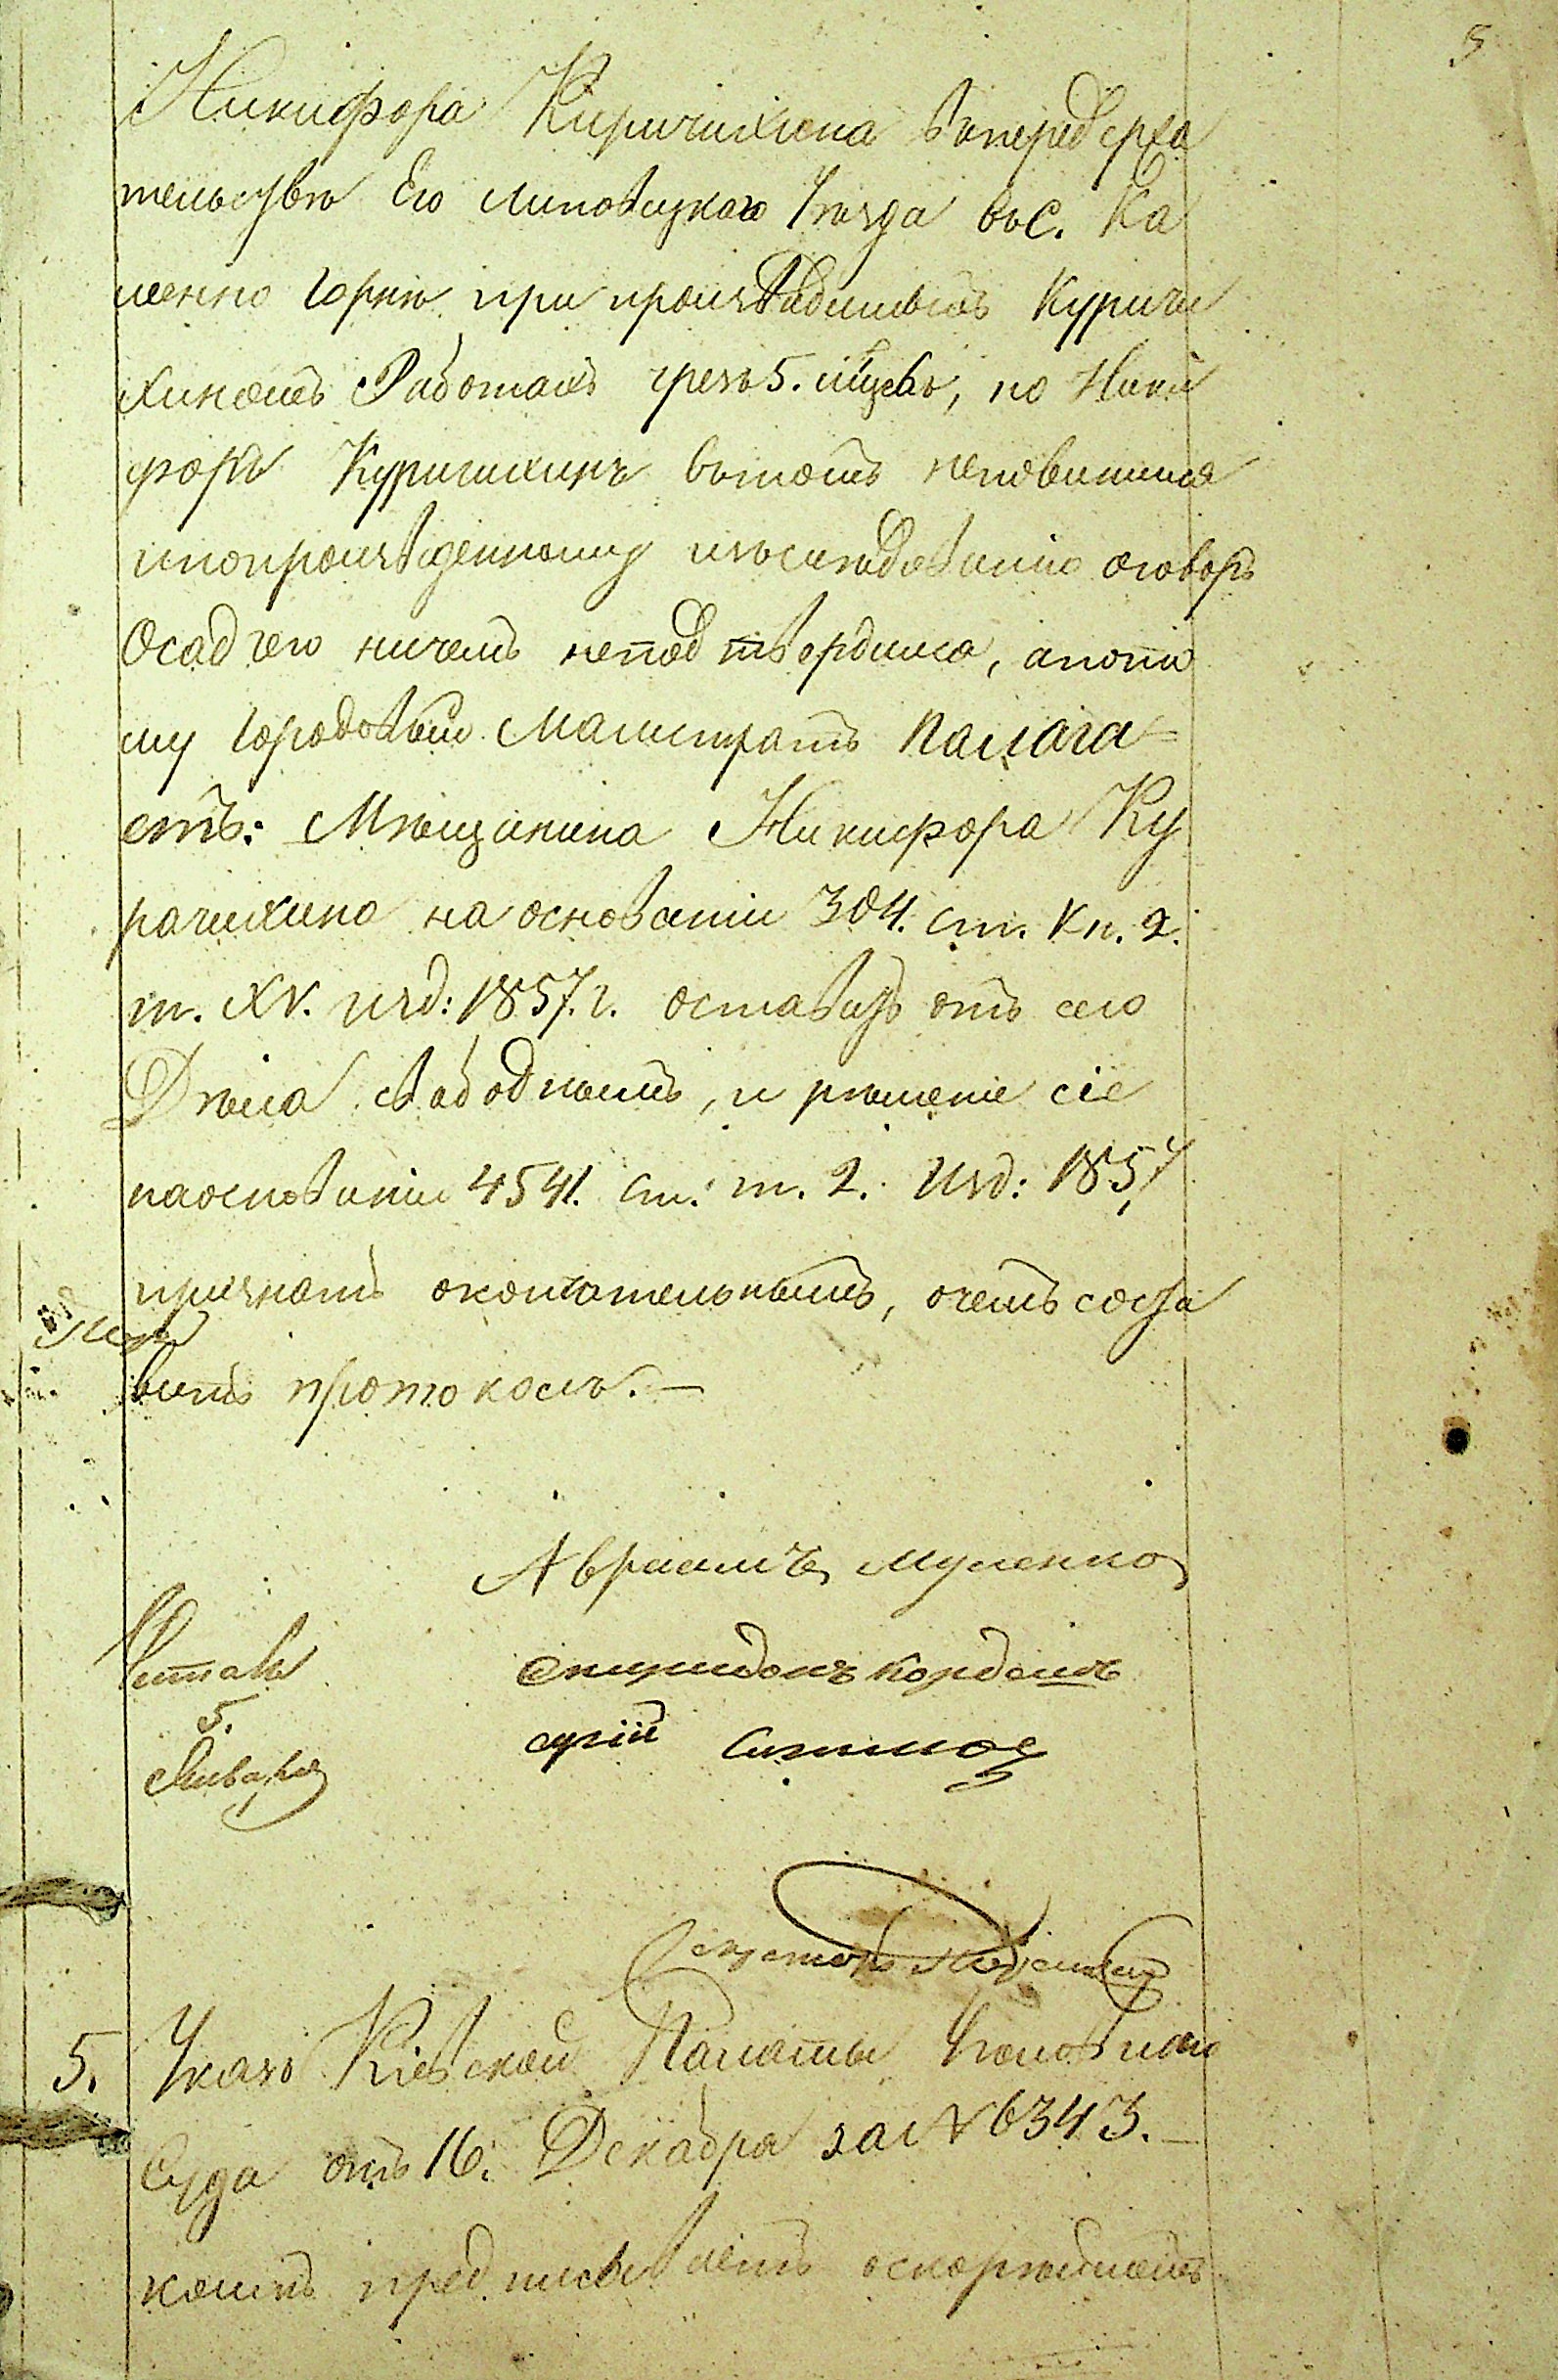 5
Никифора Киричихина впередержа
тельствѣ Его Липовецкаго Уѣзда въ с. Ка
менно Горкѣ при произвѣдимыхъ Куричи
хинымъ Работахъ чрезъ 5. мцевъ, но Ники
форъ Куричихинъ вътомъ неповинился
ипопроизвѣденному изъслѣдованію оговоръ
Осадчего ничемъ неподтвердился, апото
му Городовый Магистратъ палага=
етъ: Мѣщанина Никифора Ку
рачихина на основаніи 304. ст. Кн. 2.
т. XV. изд: 1857. г. оставить отъ сего
Дѣла свабоднымъ, и рѣшеніе сіе
наоснованіи 4541. ст. т. 2. Изд: 1857
признать окончательнымъ, очемъ соста
вить протоколъ.—
Авраамъ
Спиридонъ
Читалъ
5.
Января
Секретарь
5. Указъ Кіевской Палаты Уголовнаго
Суда отъ 16. Декабря за № 6343.—
коимъ предписываетъ оскорѣйшемъ